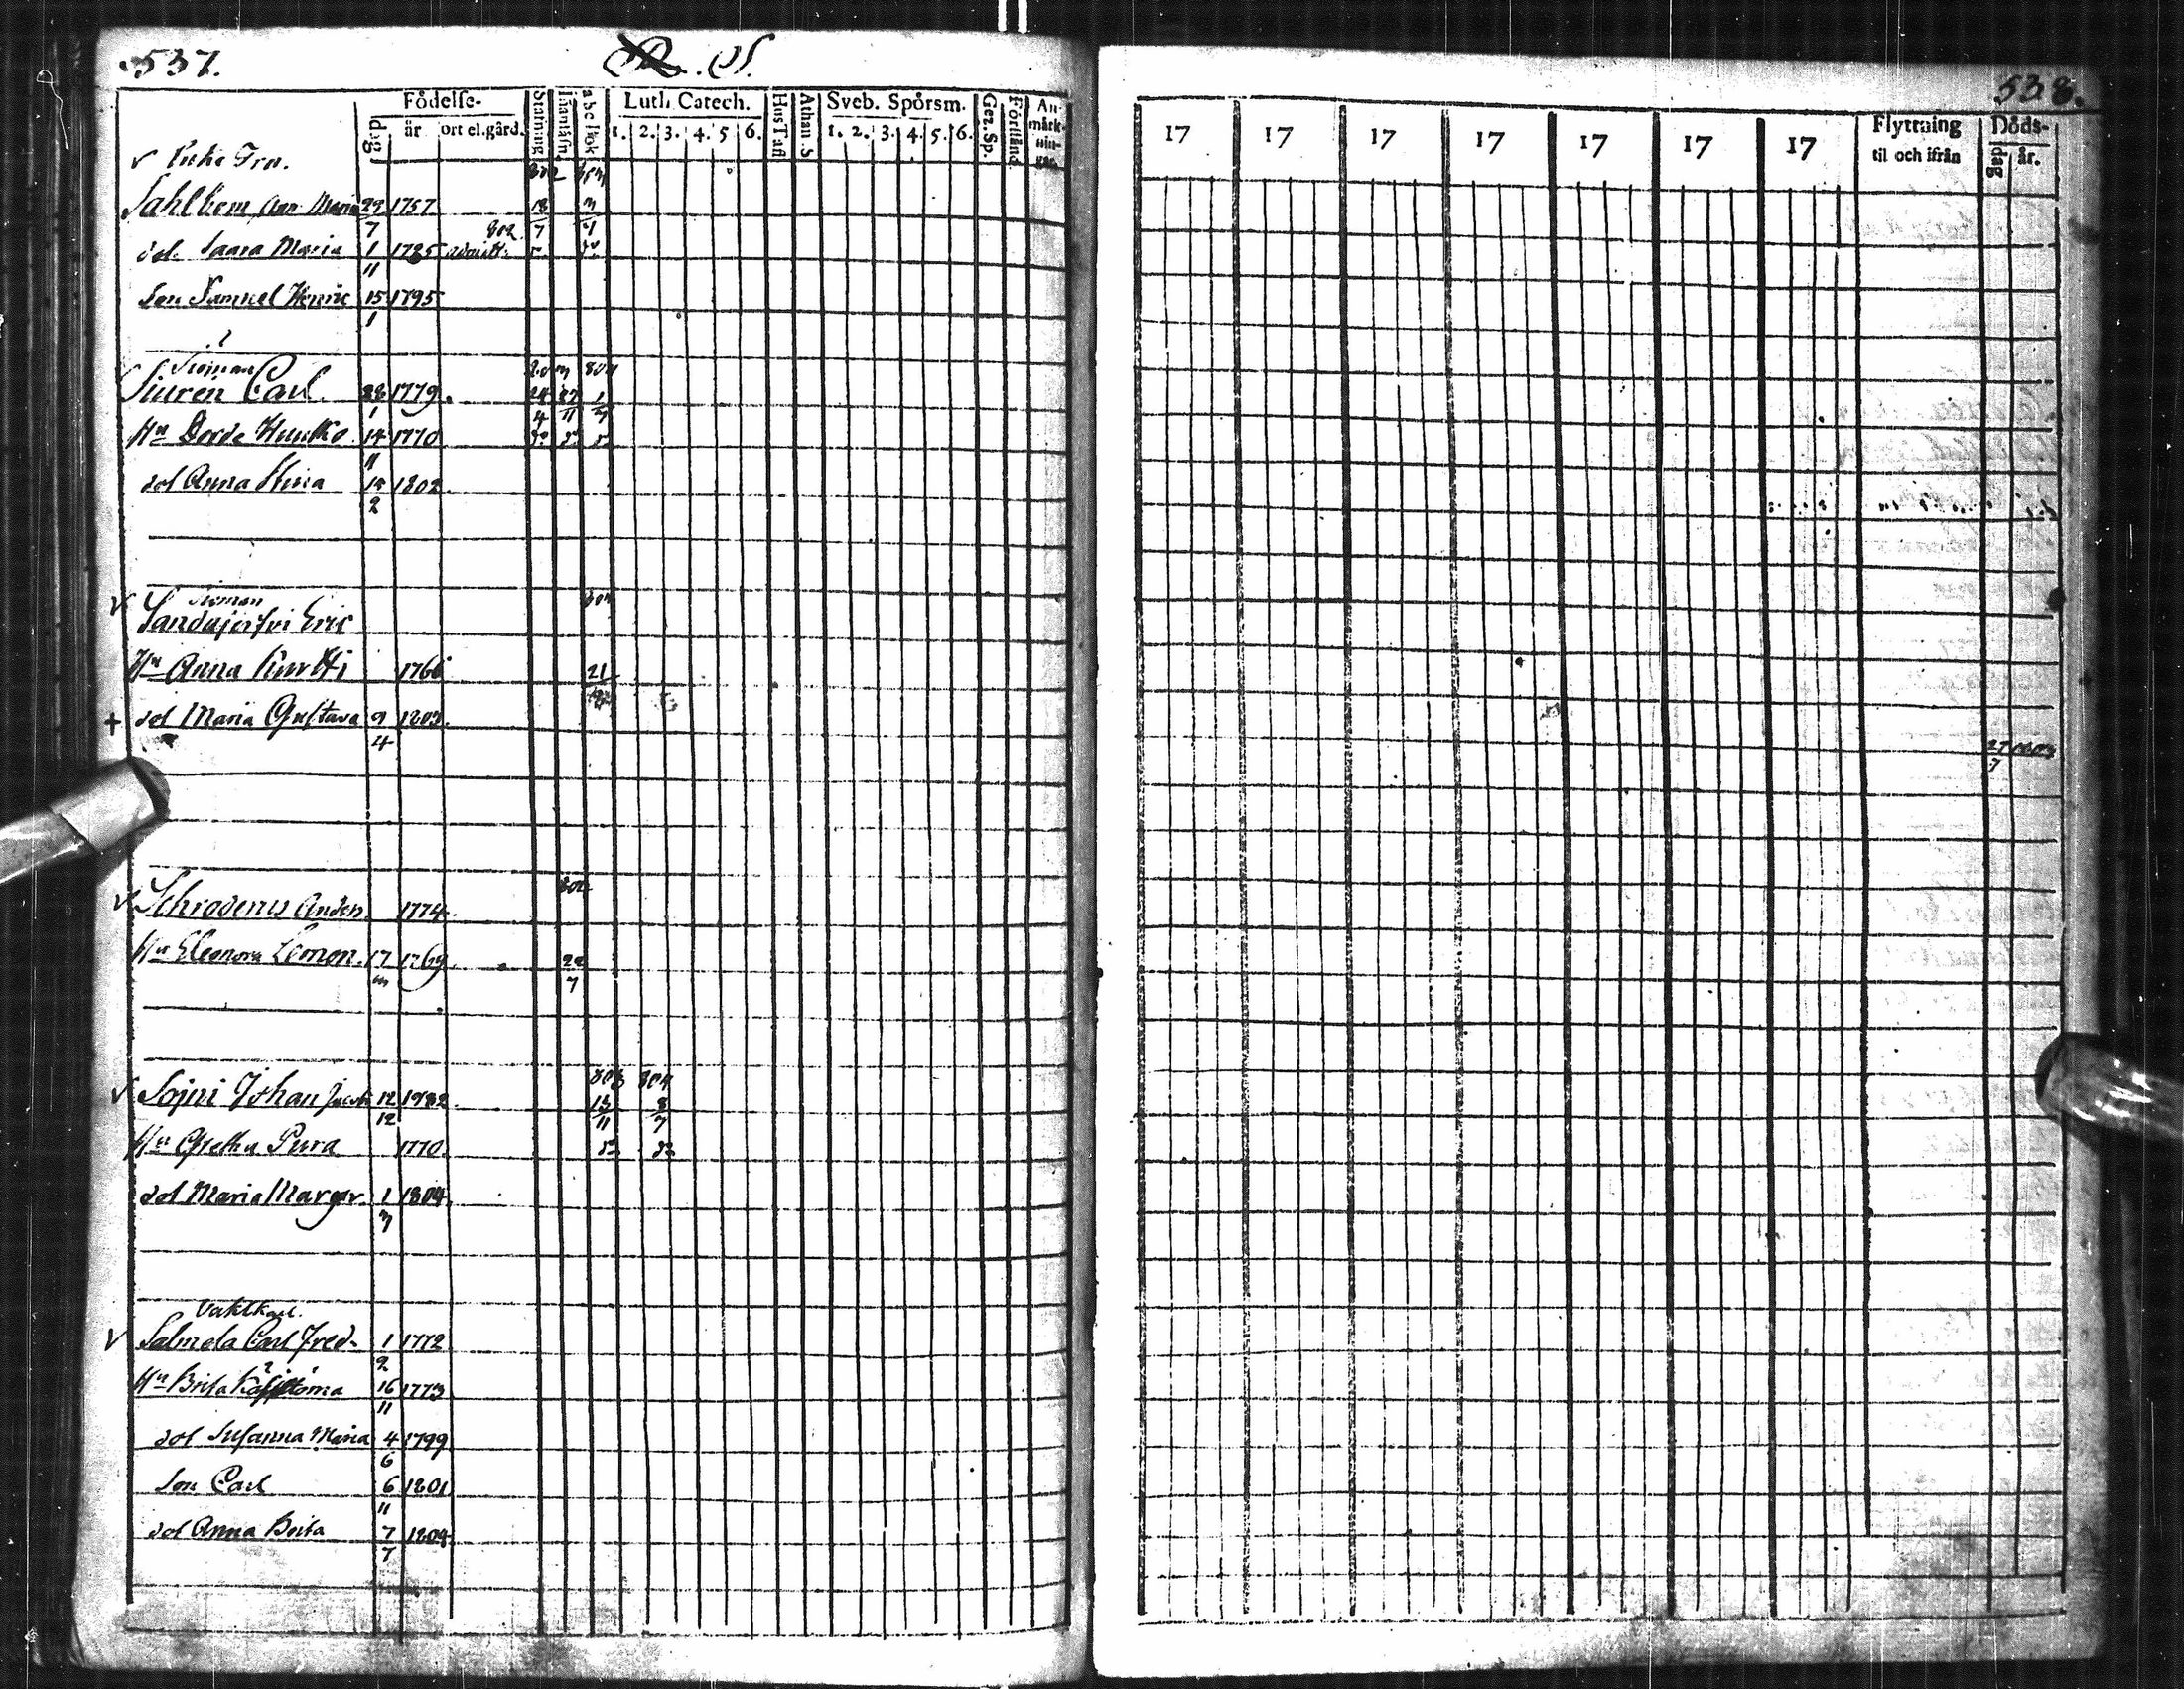 537. S.
Födelse- Luth. Catech. Hus Tafl Athan. S Sveb. Spörsm. Gez. Sp. Förstånd An-
dag är ort el. gård. Stafning Innanläsn. abc Bok 1. 2. 3. 4. 5 6. 1. 2. 3. 4. 5. 6. märk-
nin-
gar.
Enke Fru. 802 803
Sahlbom Ann Maria 29/7 1757 18/7 3/7
802.
dot. Saara Maria 1/11 1785 admitt:
Son Samuel Henric 15/1 1795
Siöman 803 804
Siuren Carl. 28/1 1779. 24/4 27/11 1/7
Hu 14/11 1770
dot Anna Stina 15/2 1802.
Siöman 804
Sandujerfvi Eric
Hu Anna Kurtti 1766 21
+ dot Maria Gustava 9/4 1803.
802
Schroderus Anders. 1774.
Hu Eleonora Lemon. 17 1769. 22/7
803 804
Sojni Johan Jacob 12/12 1782. 13/11 8/7
Hu Gretha Pura 1770.
dot Maria Margar. 1/7 1804.
Vaktkarl.
Salmela Carl Fred. 1/2 1772
Hu Brita 16/11 1773
dot Susanna Maria 4/6 1799
Son Carl 6/11 1801
dot Anna Brita 7/7 1804.
538.
17 17 17 17 17 17 17 Flyttning Döds-
til och ifrån dag år.
27/7 1803